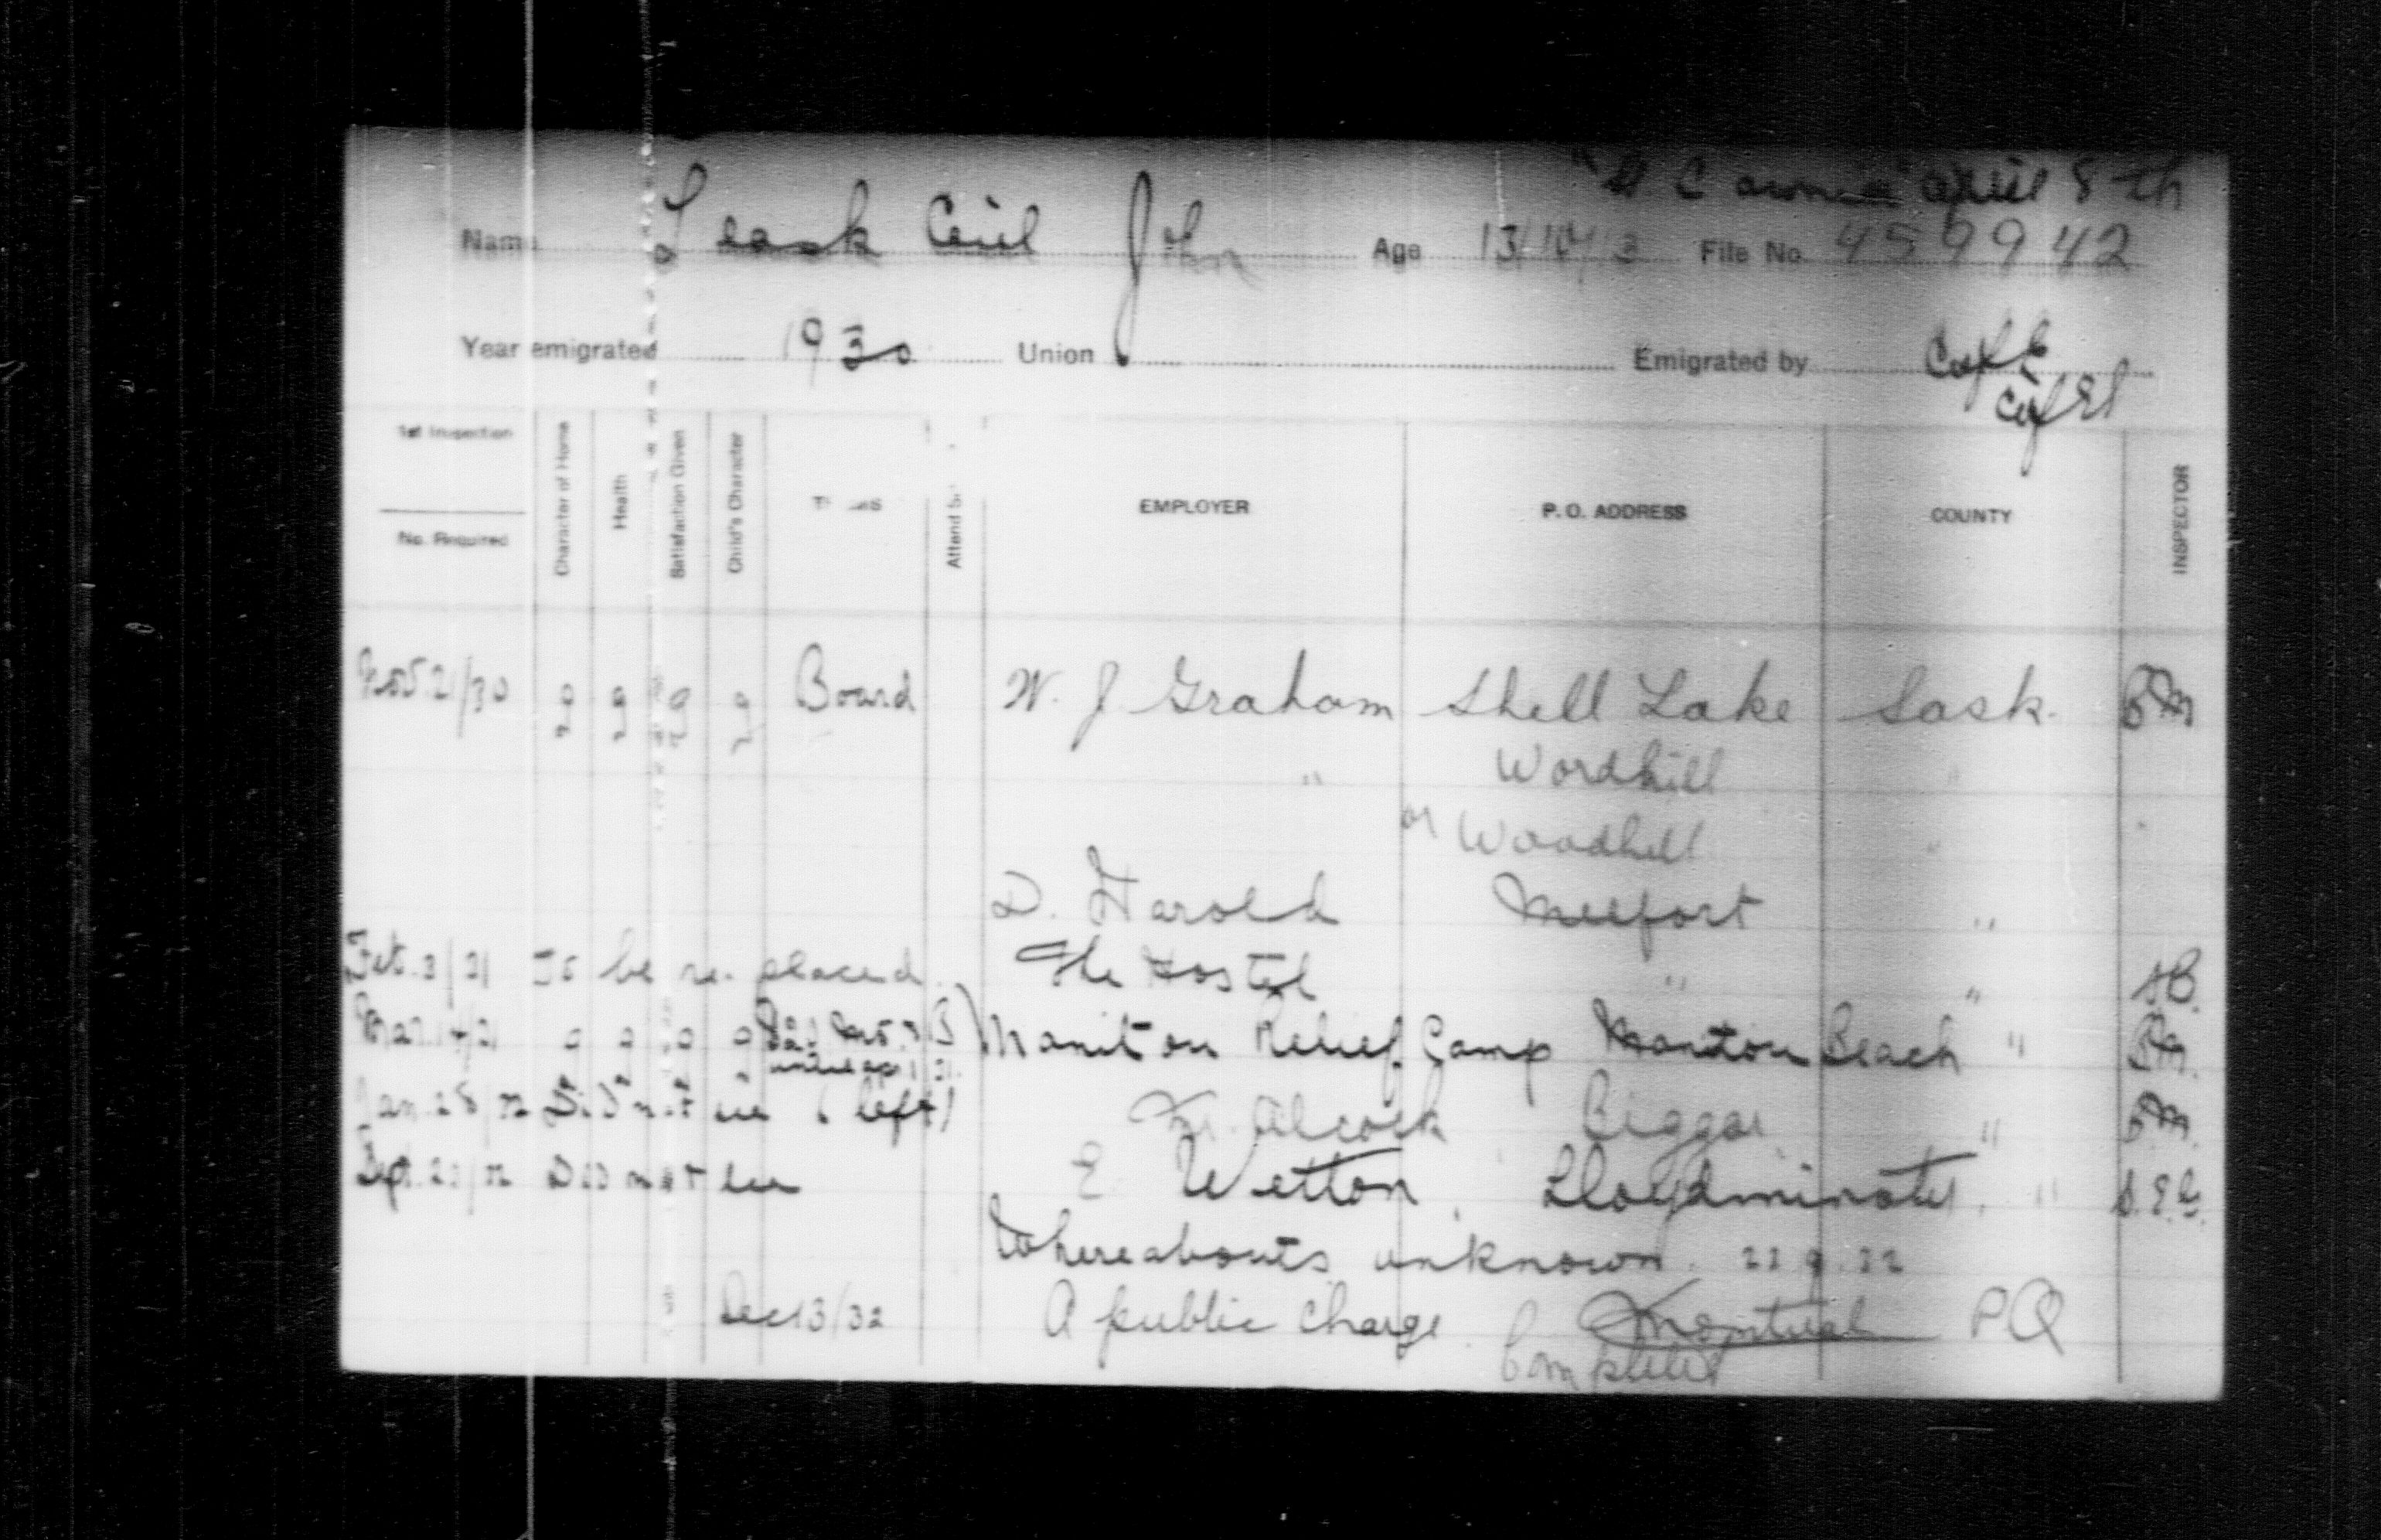 April 8th
Name Leask Cecil John Age 13/10/13 File No. 459942
Year emigrated 1930 Union Emigrated by C of E
C of E
1st Inspection
No. Required
Character of Home
Health
Satisfaction Given
Child's Character
Attend
EMPLOYER
P. O. ADDRESS
COUNTY
INSPECTOR
Nov. 21/30 g g g g Board W. J. Graham Shell Lake Sask. B.M
" Wordhill "
or Woodhill "
D. Harold Melfort "
Feb. 3/31 To be re-placed. The Hostel " " AB.
Mar. 31 g g g g Manitou Relief Camp Manitou Beach " B.M.
Jan. 28/32 Did not see (left) Alcock Biggar " B.M.
Sept. 23/32 Did not see E Wetton Lloydminster. "
Whereabouts unknown. 23.9.32
Dec 13/32 A public charge Montreal PQ
Completed